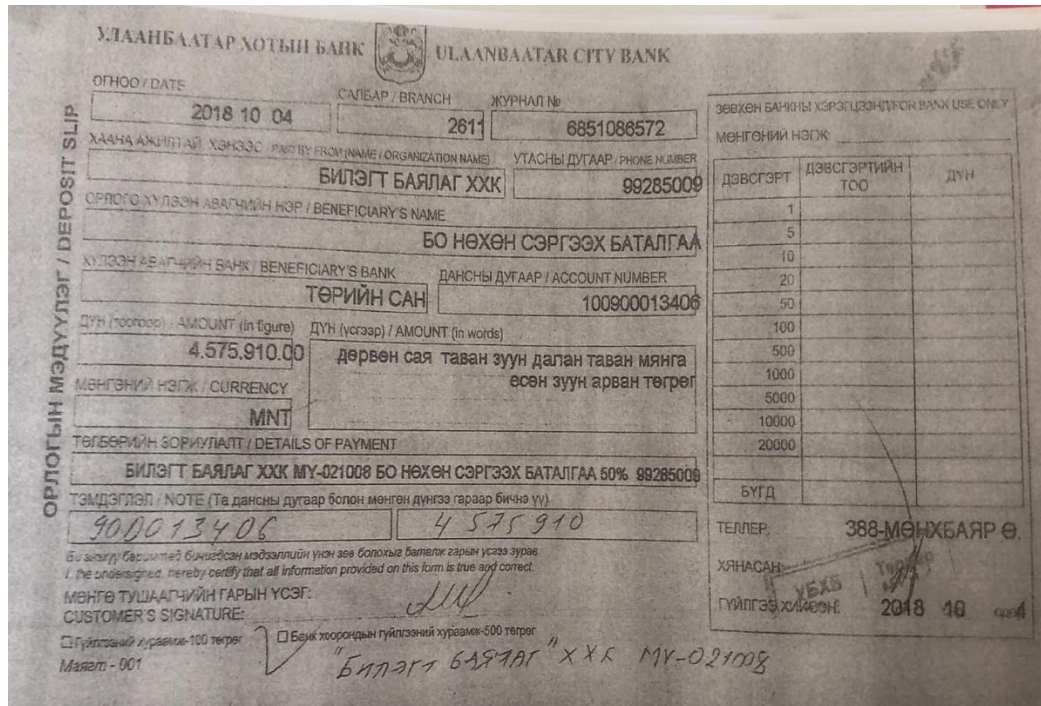 УЛААНБААТАР ХОТЫН БАНК ULAANBAATAR CITY BANK
ОРЛОГЫН МЭДҮҮЛЭГ / DEPOSIT SLIP
ОГНОО / DATE
2018 10 04
САЛБАР / BRANCH
2611
ЖУРНАЛ №
6851086572
ХААНА АЖИЛТАЙ, ХЭНЭЭС / PAID BY FROM (NAME / ORGANIZATION NAME)
БИЛЭГТ БАЯЛАГ ХХК
УТАСНЫ ДУГААР / PHONE NUMBER
99285009
ОРЛОГО ХҮЛЭЭН АВАГЧИЙН НЭР / BENEFICIARY'S NAME
БО НӨХӨН СЭРГЭЭХ БАТАЛГАА
ХҮЛЭЭН АВАГЧИЙН БАНК / BENEFICIARY'S BANK
ТӨРИЙН САН
ДАНСНЫ ДУГААР / ACCOUNT NUMBER
100900013406
ДҮН (тоогоор) / AMOUNT (in figure)
4.575.910.00
ДҮН (үсгээр) / AMOUNT (in words)
дөрвөн сая таван зуун далан таван мянга
есөн зуун арван төгрөг
МӨНГӨНИЙ НЭГЖ / CURRENCY
MNT
ТӨЛБӨРИЙН ЗОРИУЛАЛТ / DETAILS OF PAYMENT
БИЛЭГТ БАЯЛАГ ХХК MY-021008 БО НӨХӨН СЭРГЭЭХ БАТАЛГАА 50% 99285009
ТЭМДЭГЛЭЛ / NOTE (Та дансны дугаар болон мөнгөн дүнгээ гараар бичнэ үү)
900013406
4 575 910
Би энэхүү баримтад бичигдсэн мэдээллийн үнэн зөв болохыг баталж гарын үсгээ зурав.
I, the undersigned, hereby certify that all information provided on this form is true and correct.
МӨНГӨ ТУШААГЧИЙН ГАРЫН ҮСЭГ:
CUSTOMER'S SIGNATURE:
Гүйлгээний хураамж-100 төгрөг
Банк хоорондын гүйлгээний хураамж-500 төгрөг
Маягт - 001
"Билэгт БАЯЛАГ" ХХК MY-021008
ЗӨВХӨН БАНКНЫ ХЭРЭГЦЭЭНД/FOR BANK USE ONLY
МӨНГӨНИЙ НЭГЖ:
ДЭВСГЭРТ ДЭВСГЭРТИЙН ТОО ДҮН
1
5
10
20
50
100
500
1000
5000
10000
20000
БҮГД
ТЕЛЛЕР: 388-МӨНХБАЯР Ө.
ХЯНАСАН:
УБХБ
ГҮЙЛГЭЭ ХИЙСЭН: 2018 10